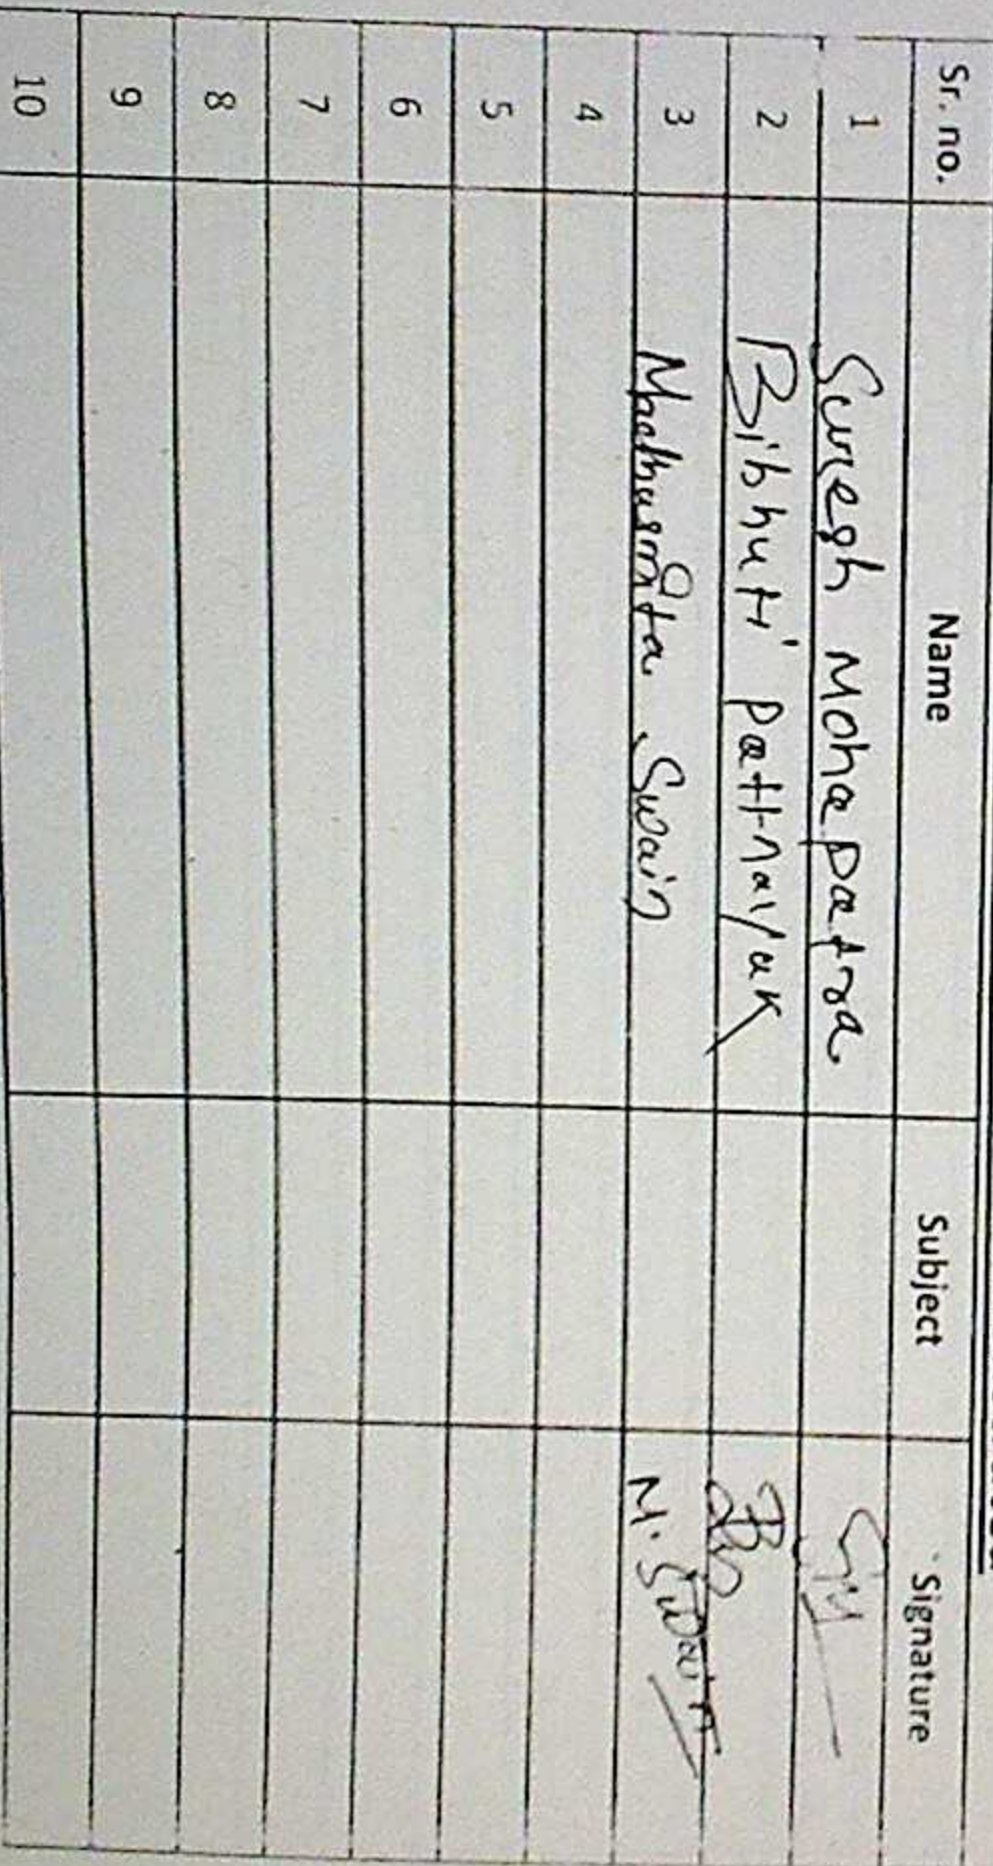 Sr. no. Name Subject Signature
1 Suresh Mohapatra SM
2 Bibhuti Pattnaik
3 Madhusmita Swain M. Swain
4
5
6
7
8
9
10